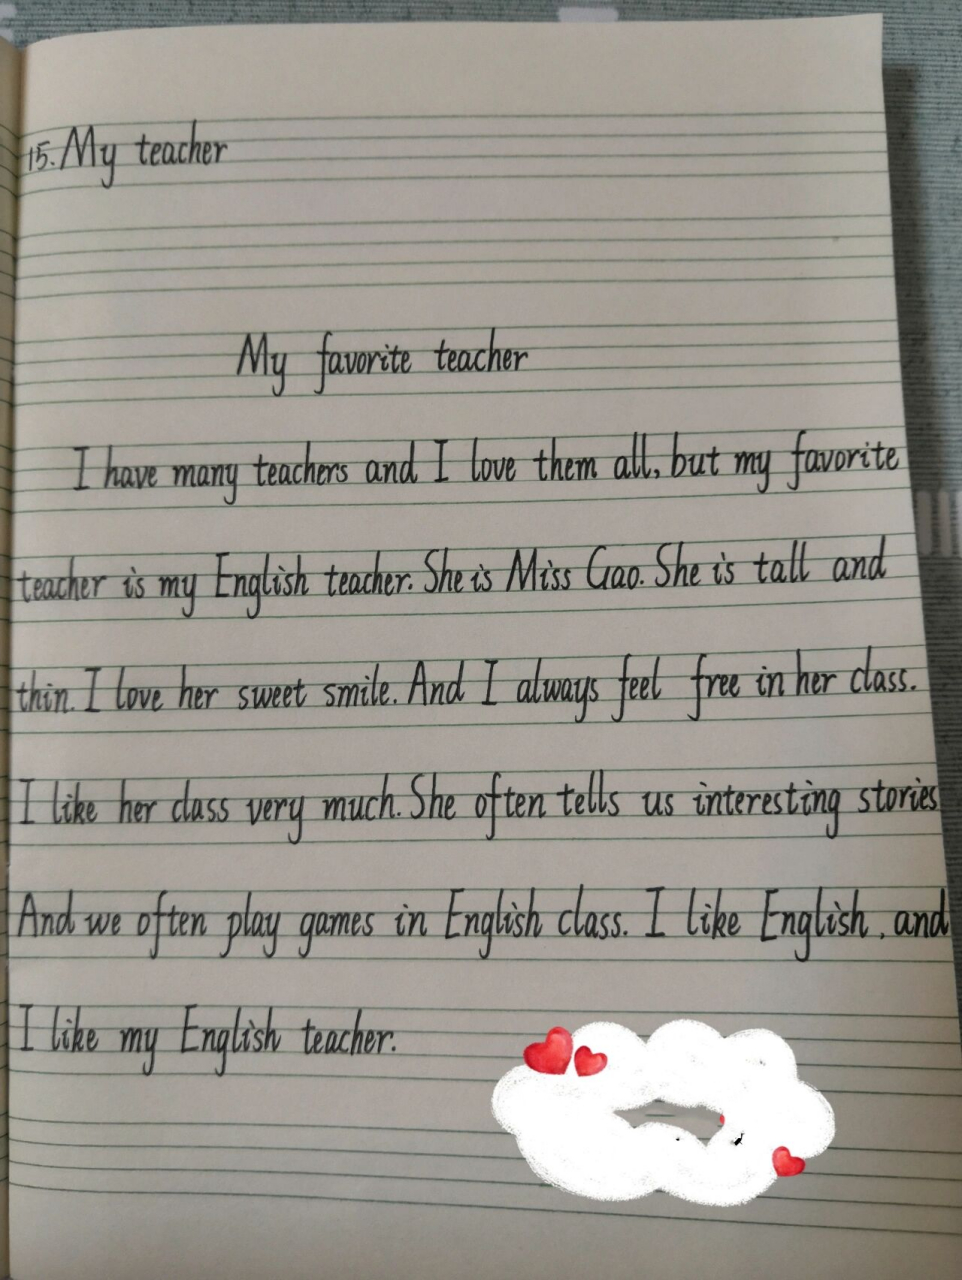 15. My teacher
My favorite teacher
I have many teachers and I love them all, but my favorite
teacher is my English teacher. She is Miss Gao. She is tall and
thin. I love her sweet smile. And I always feel free in her class.
I like her class very much. She often tells us interesting stories
And we often play games in English class. I like English, and
I like my English teacher.